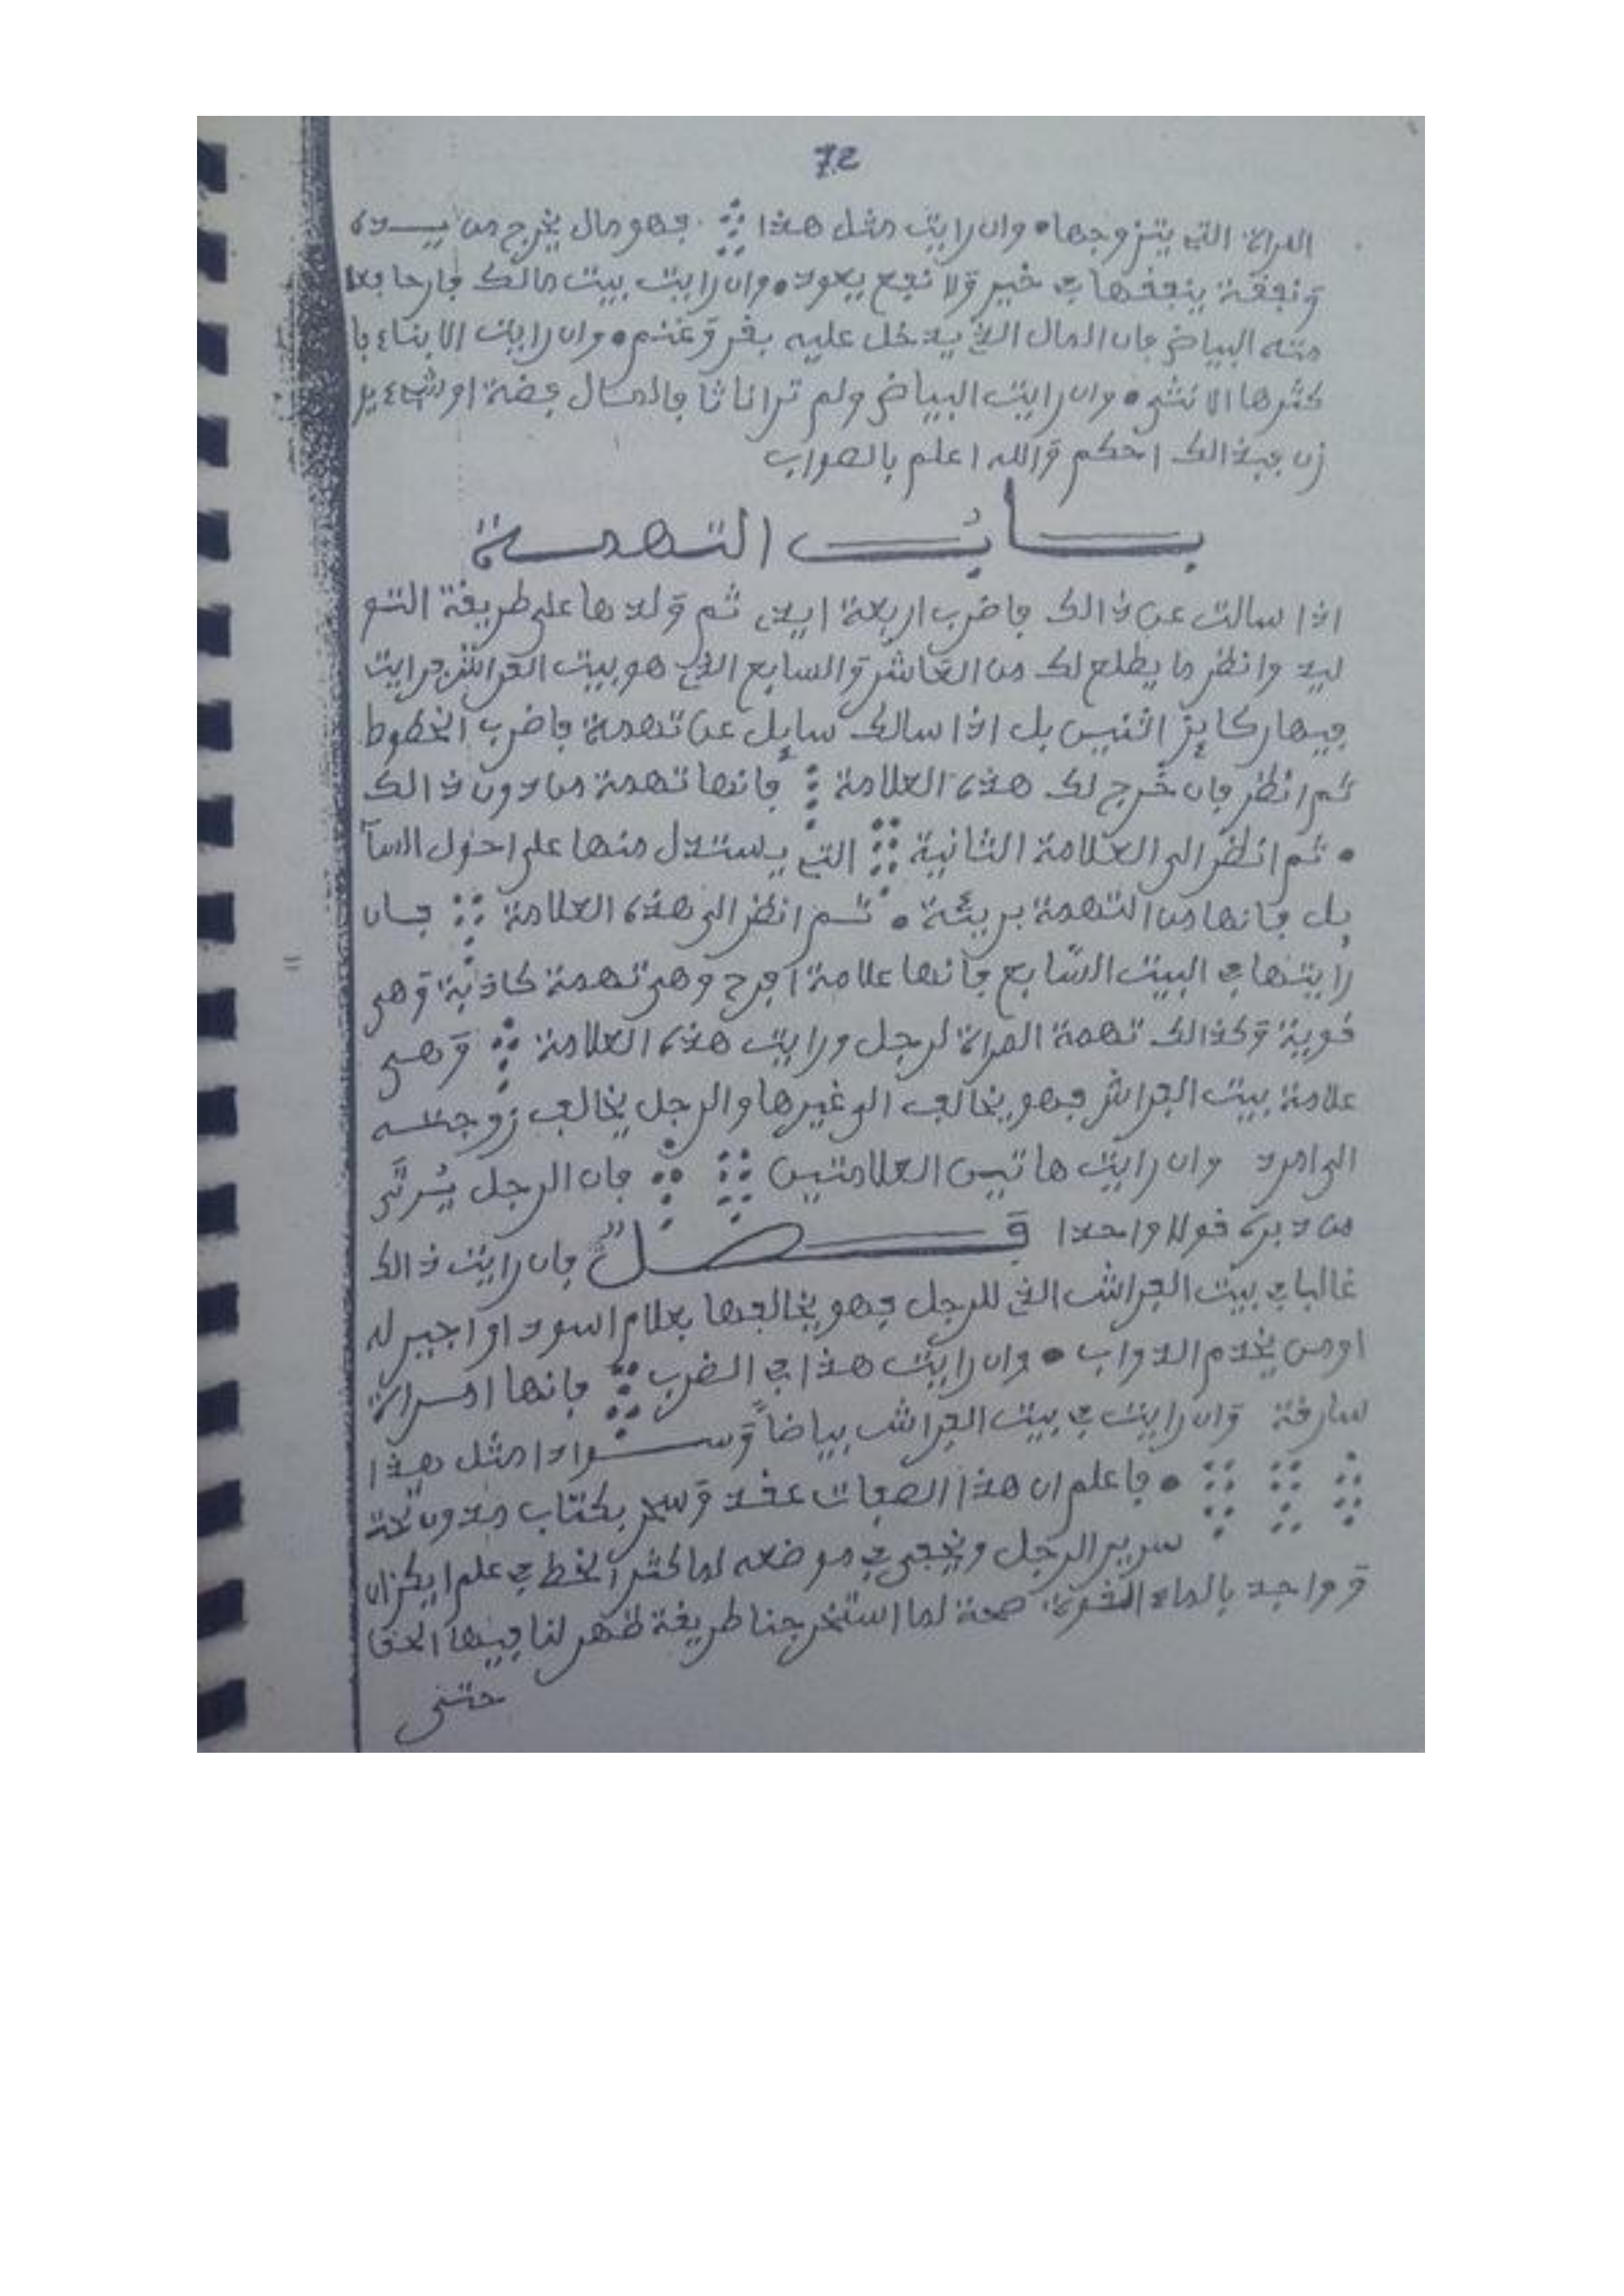 72
المراة التي يتزوجها • وان رايت مثل هذا فهو مال يخرج من يــده
ونفقة ينفقها في خير ولا نفع يعود • وان رايت بيت مالك فارحا بعا
منه البياض فان المال الذي يدخل عليه بقر وغنم • وان رايت الابناء فا
كثرها الانثى • وان رايت البياض ولم تر اناثا فالمــال فضة او شيء يو
زن فبذالك احكم والله اعلم بالصواب
بــــاب التهمــة
اذا سالت عن ذالك فاضرب اربعة ايد، ثم ولدها على طريقة التو
ليد وانظر ما يطلع لك من العاشر والسابع الذي هو بيت الفراش فرايت
فيها ركايز اثنين بل اذا سالك سايل عن تهمة فاضرب الخطوط
ثم انظر فان خرج لك هذه العلامة فانها تهمة من دون ذالك
• ثم انظر الى العلامة الثانية التي يستدل منها على احول السآ
يل فانها من التهمة بريئة • ثــم انظر الى هذه العلامة فــان
رايتها في البيت السّابع فانها علامة افرح وهي تهمة كاذبة وهي
قوية وكذالك تهمة المراة لرجل ورايت هذه العلامة وهــي
علامة بيت الفراش فهو يخالف الى غيرها والرجل يخالف زوجتــه
الى امرد وان رايت هاتين العلامتين فان الرجل يُوتَى
من دبره قولا واحدا فــــصــل فان رايت ذالك
غالبا في بيت الفراش الذي للرجل فهو يخالفها بغلام اسود او اجير له
او من يخدم الدواب • وان رايت هذا في الضرب فانها امــراة
سارقة وان رايت في بيت الفراش بياضاً وســوادا مثل هذا
• فاعلم ان هذا الصفات عقد وسحر بكتاب مدون تحت
سرير الرجل ويخفى في موضعه لما كثر الخط في علم
و بالماء صحة لما استخرجنا طريقة ظهر لنا فيها الحق
حتى